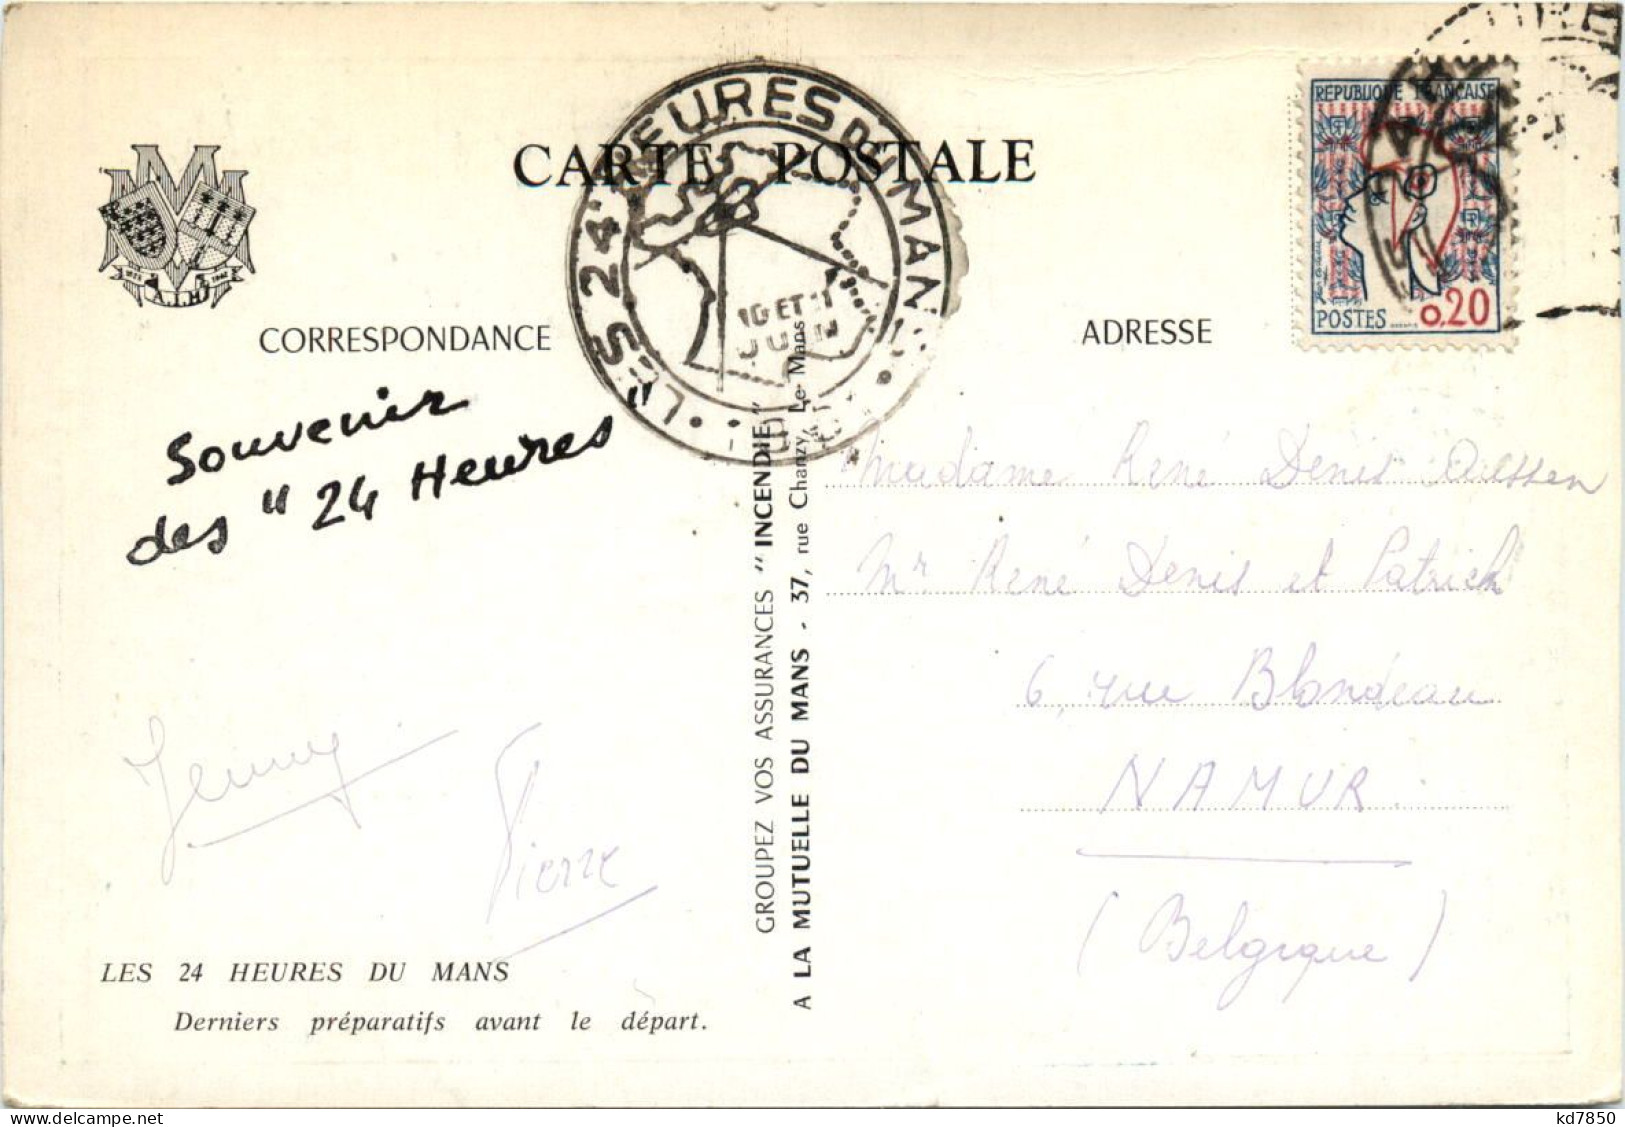 CARTE POSTALE
LES 24 HEURES DU MANS
JUIN
RÉPUBLIQUE FRANÇAISE
POSTES 0,20
A.I.H
CORRESPONDANCE
ADRESSE
Souvenir
des "24 Heures"
Jenny
Pierre
LES 24 HEURES DU MANS
Derniers préparatifs avant le départ.
GROUPEZ VOS ASSURANCES "INCENDIE"
A LA MUTUELLE DU MANS - 37, rue Chanzy, Le Mans
Madame René Denis
Mr René Denis et Patrick
6, rue Blondeau
NAMUR
(Belgique)
delcampe.net
kd7850